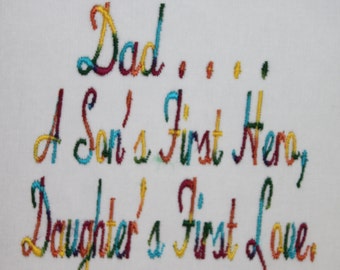 Dad . . . .
A Son's First Hero,
Daughter's First Love.